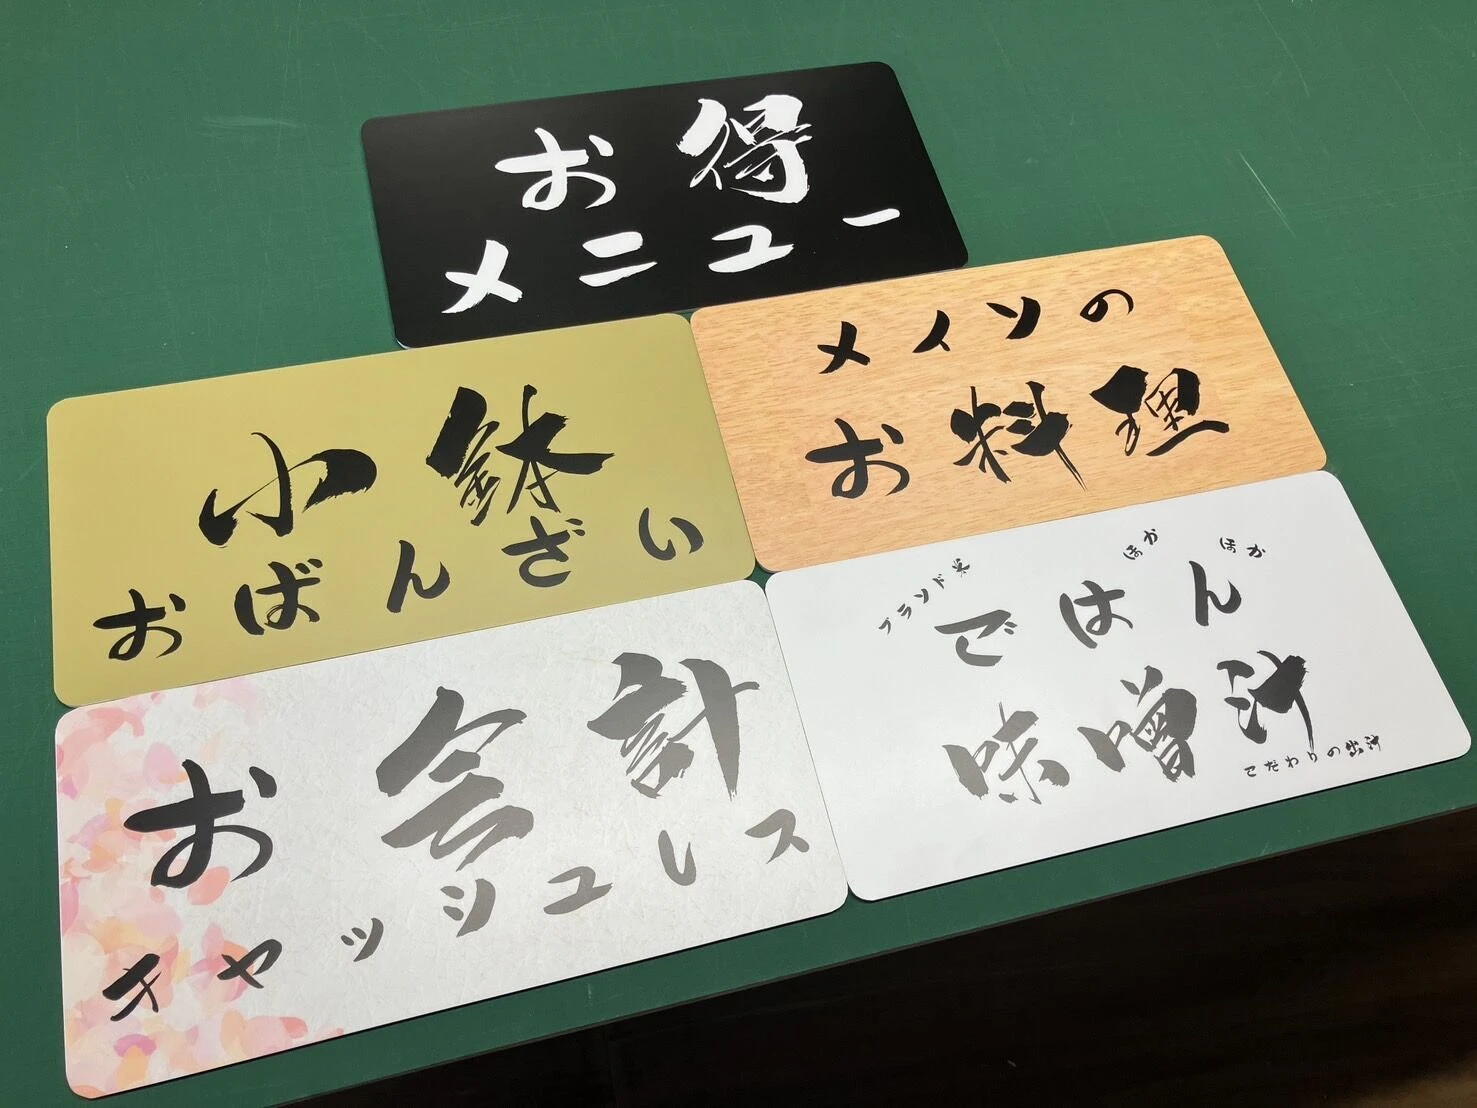 お得
メニュー
メインの
お料理
小鉢
おばんざい
ブランド米
ほかほか
ごはん
味噌汁
こだわりの出汁
お会計
キャッシュレス